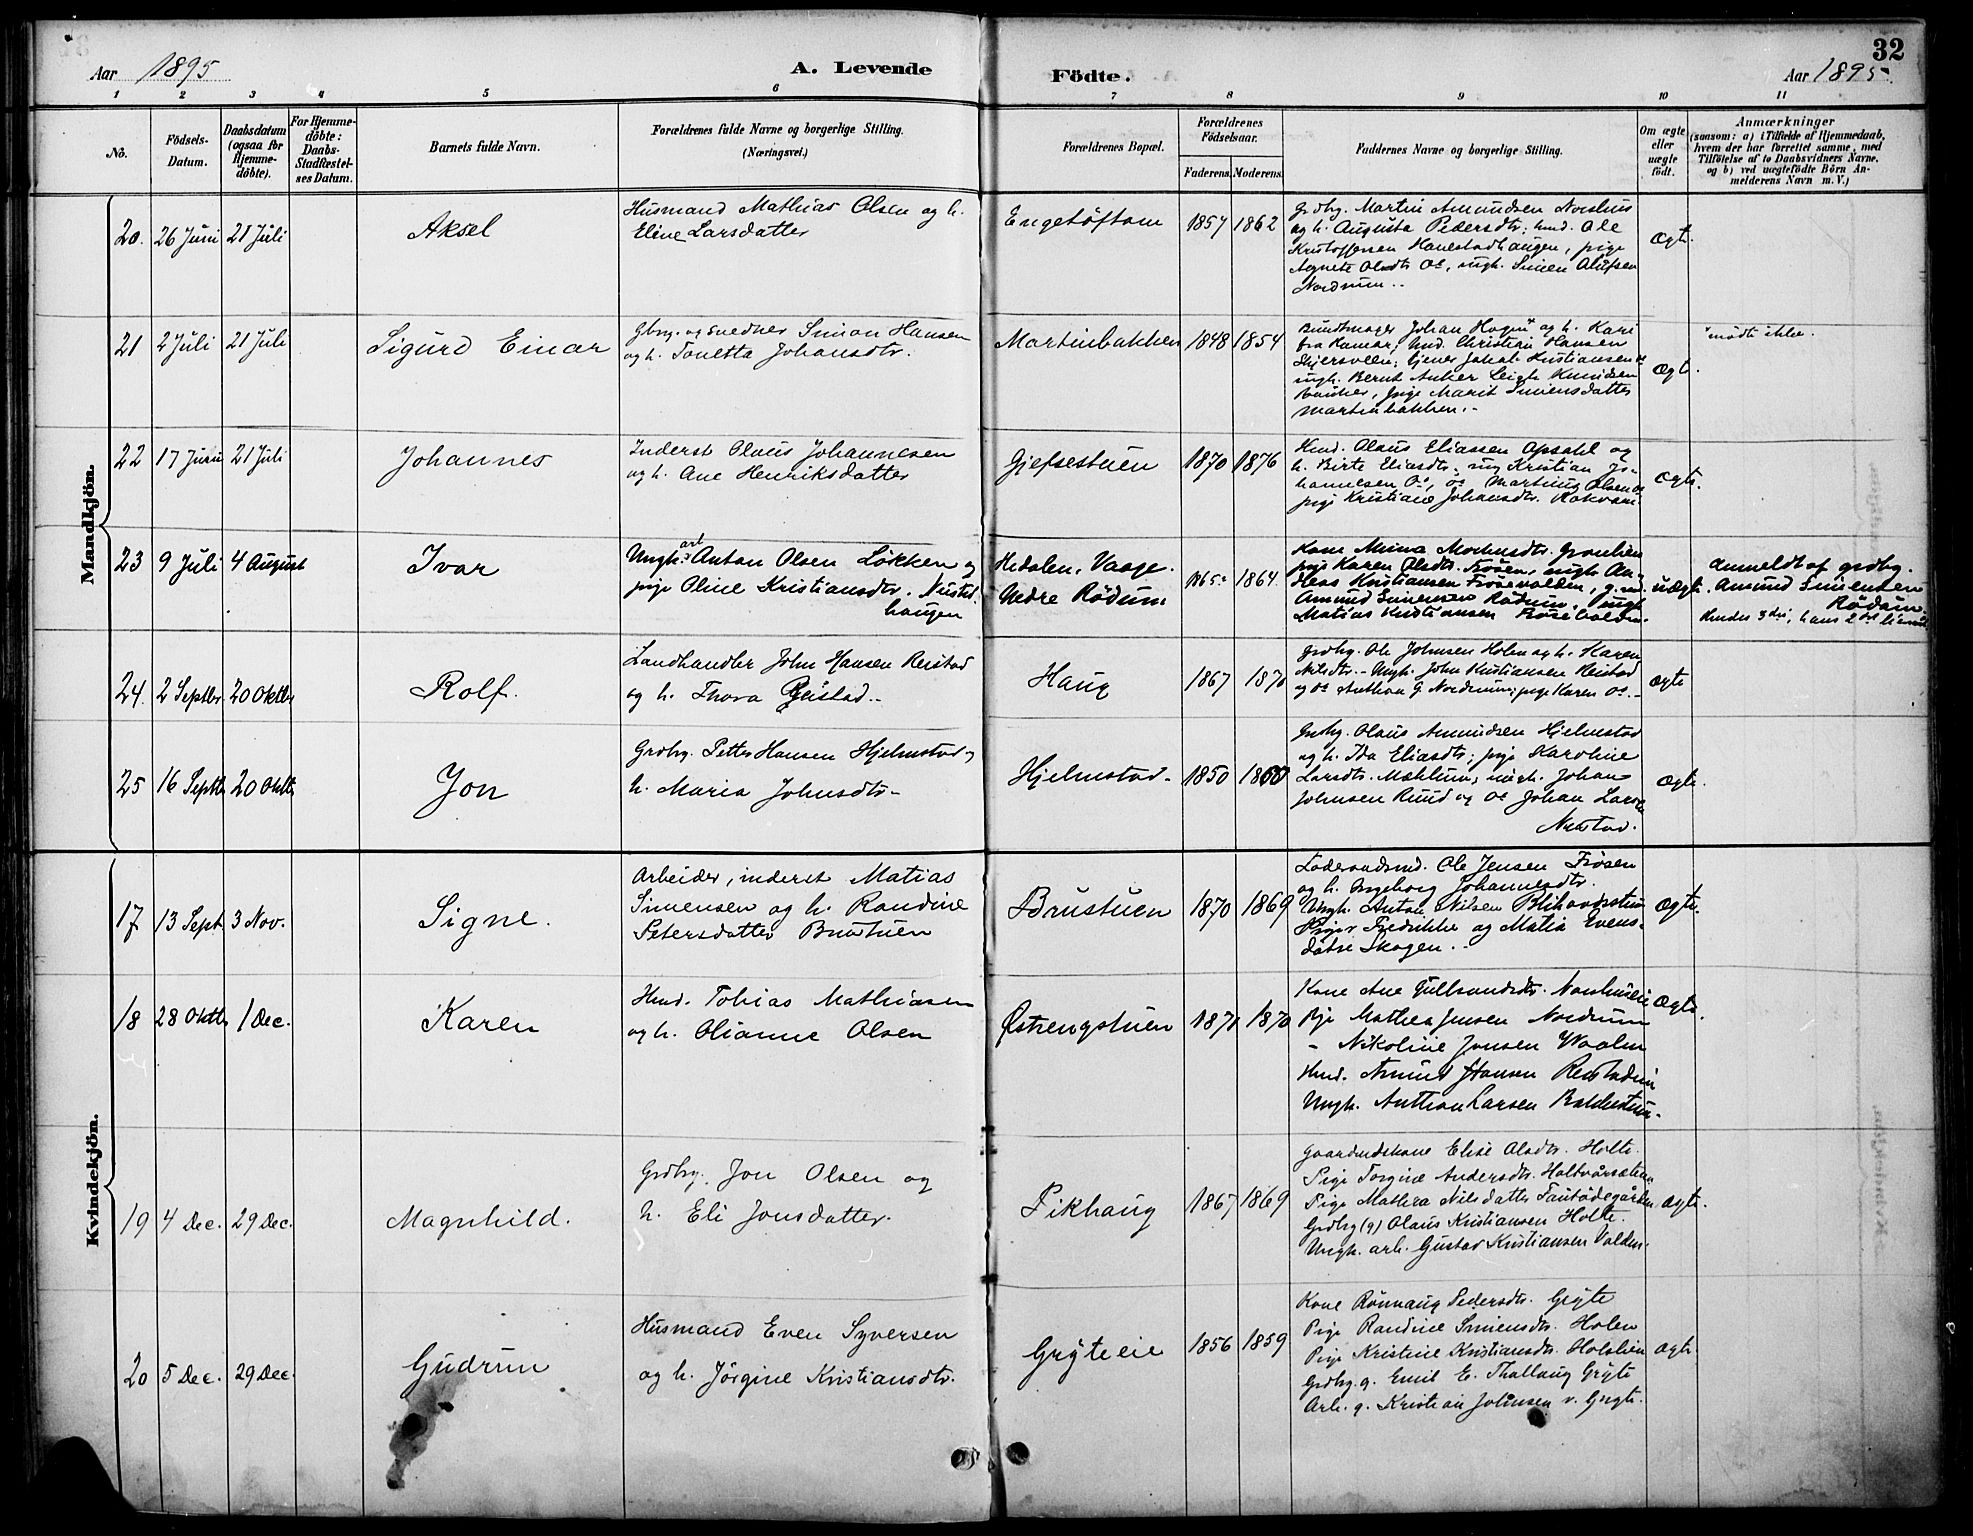 32
Aar 1895
A. Levende
Födte.
Aar 1895
1 2 3 4 5 6 7 8 9 10 11
No.
Födsels-
Datum.
Daabsdatum
(ogsaa for
Hjemme-
döbte).
For Hjemme-
döbte:
Daabs-
Stadfæstel-
ses Datum.
Barnets fulde Navn.
Forældrenes fulde Navne og borgerlige Stilling.
(Næringsvei.)
Forældrenes Bopæl.
Forældrenes
Födselsaar.
Faderens. Moderens.
Faddernes Navne og borgerlige Stilling.
Om ægte
eller
uægte
födt.
Anmærkninger
(saasom: a) i Tilfælde af Hjemmedaab,
hvem der har forrettet samme, med
Tilföielse af to Daabsvidners Navne,
og b) ved uægtefödte Börn An-
melderens Navn m. V.)
Mandkjön.
20. 26 Juni 21 Juli
Aksel
Husmand Mathias Olsen og h.
Eline Larsdatter
Engetöftom
1857 1862
Grdbg. Martin Amundsen
og h. Augusta Pedersdtr; hmd. Ole
Kristoffersen Hanestadhaugen, pige
Agnete Olsdtr Os, ungk. Simen Olufsen
Nordrum..
ægte.
21 2 Juli 21 Juli
Sigurd Einar
Gbrg. og snedker Simon Hansen
og h. Tonetta Johansdtr.
Martinbakken
1848 1854
Bundtmager Johan Hagen" og h. Kari
fra Hamar; hmd. Christian Hansen
tjener Johan Kristiansen
ungk. Bernt Anker Knudsen
pige Marit Simensdatter
Martinbakken.-
ægte.
" mødte ikke.
22 17 Juni 21 Juli
Johannes
Inderst Olaus Johannesen
og h. Ane Henriksdatter
Gjefsestuen
1870 1876
Hmd. Olaus Eliassen Opsahl og
h. Birte Eliasdtr; ung Kristian Jo-
hannesen Os, os Martinus Olsen
pige Kristiane Johansdtr.
ægte.
23 9 Juli 4 August
Ivar
Ungk. arb. Anton Olsen Løkken og
pige Oline Kristiansdtr. Nustad
haugen
Hedalen, Vaage.
Nedre Rødum
1865 1864
Kone Mina
pige Karen Olsdtr. Frøsen, ungk. An-
dreas Kristiansen Frøsevolden, g.m.
Amund Simensen Rødum. Ungk
Matias Kristiansen Frøsevolden.
uægte.
Anmeldt af grdbg.
Amund Simensen
Rødum.
Hendes 3die, hans 2det
24. 2 Septbr. 20 Oktbr
Rolf.
Landhandler John Hansen Reistad
og h. Thora Reistad..
Haug
1867 1870
Grdbg. Ole Johnsen Holm og h. Karen
Nilsdtr. - Ungk. John Kristiansen Reistad
og os Anthon G. Nordrum; pige Karen os. -
ægte
25 16 Septbr 20 Oktbr
Jon
Grdbg. Petter Hansen Hjelmstad og
h. Maria Johnsdtr-
Hjelmstad-
1850 1860
Grdbg. Olaus Amundsen Hjelmstad
og h. Ida Eliasdtr; pige Karoline
Larsdtr. Mæhlum; ungk. Johan
Johnsen Ruud og os Johan Larsen
Nustad.
ægte.
Kvindekjön.
17 13 Sept 3 Nov.
Signe.
Arbeider, inderst Matias
Simensen og h. Randine
Petersdatter Brustuen
Brustuen
1870 1869
Föderaadsmd. Ole Jensen Frøsen
og h. Ingeborg Johannesdtr.
Ungk. Anton Nilsen
Piger Fredrikke og Matia Evens-
døtre Skogen..
ægte.
18 28 Oktbr 1 Dec.
Karen
Hmd. Tobias Mathiasen
og h. Olianne Olsen
Østrengstuen
1871 1870
Kone Ane Gulbrandsdtr.
Pige Mathea Jensen Nordrum
- Nikoline Jonsen Waalen
Hmd. Amund Hansen
Ungk. Anthon Larsen
ægte.
19 4 Dec. 29 Dec.
Magnhild.
Grdbg. Jon Olsen og
h. Eli Jonsdatter.
Pikhaug
1867 1869
Gaardmdskone Elise Olsdtr. Holte.
Pige Torgine Andersdtr.
Pige Mathea Nilsdatter
Grdbg (g) Olaus Kristiansen Holte.
Ungk. arb. Gustav Kristiansen Valden.
ægte.
20 5 Dec. 29 Dec.
Gudrun
Husmand Even Syversen
og h. Jörgine Kristiansdtr.
Grÿteeie
1856 1859
Kone Rönnaug Pedersdtr. Grÿte
Pige Randine Simensdtr. Holen
Pige Kristine Kristiansdtr. Holslien
Grdbg. g. Emil E. Thallaug Grÿte
Arb. g. Kristian Johansen v. Grÿte.
ægte.